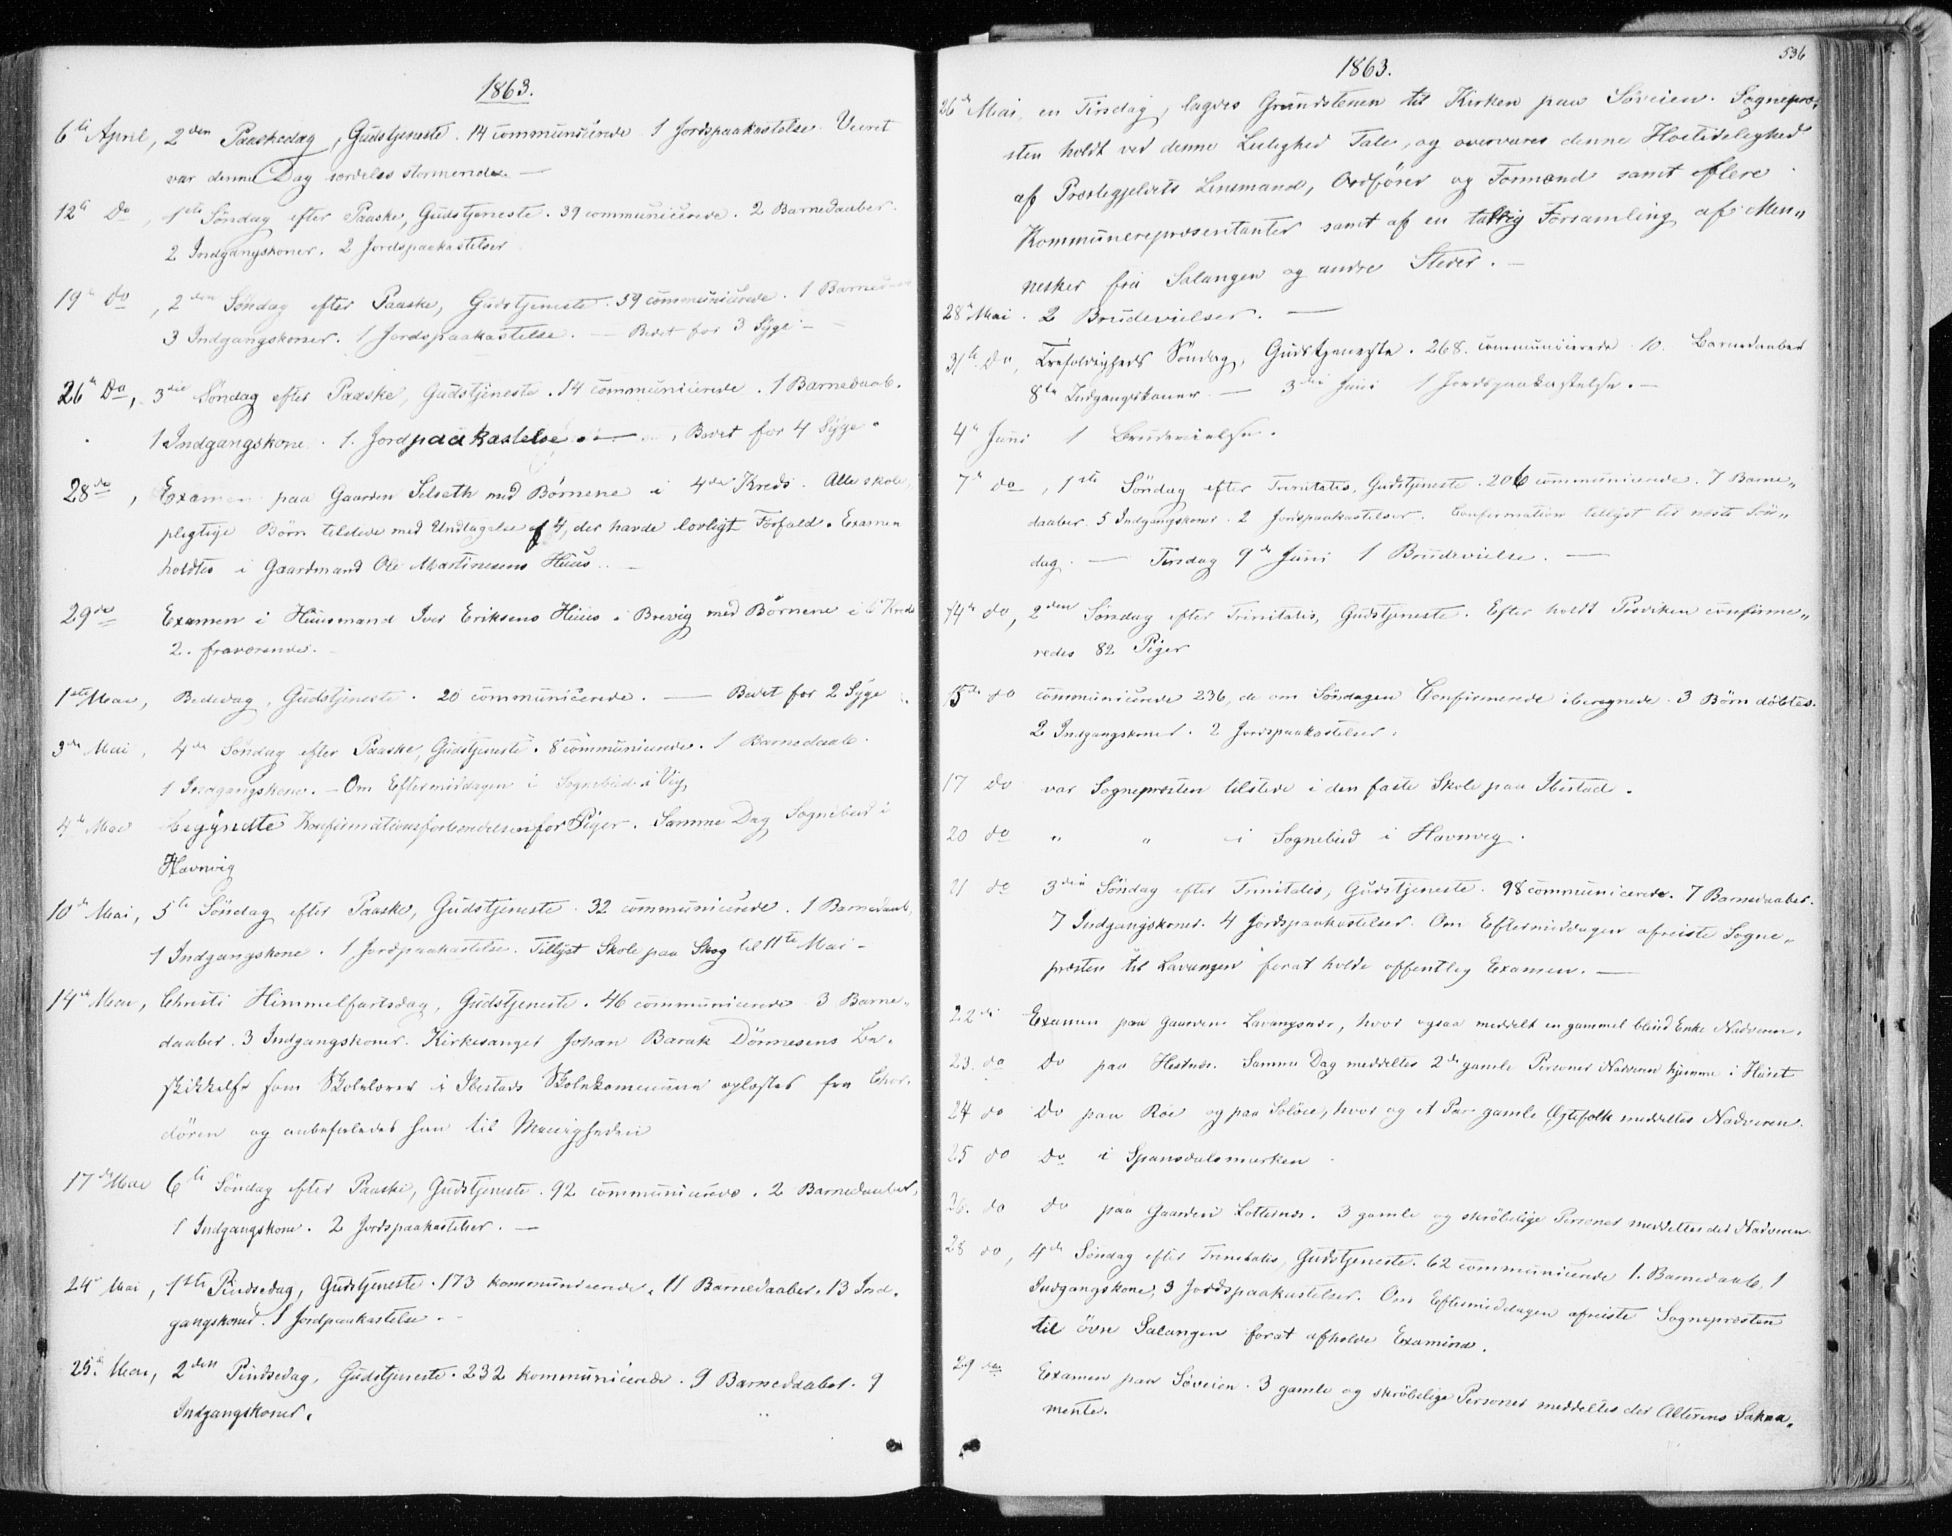 1863.
6te April, 2den Paaskedag, Gudstjeneste. 14 communicerede 1 Jordspaakastelse. Veiret
var denne Dag særdeles stormende. —
12te Do, 1ste Søndag efter Paaske, Gudstjeneste. 39 communicerede. 2 Barnedaaber.
2 Indgangskoner. 2 Jordspaakastelser
19de Do, 2den Søndag efter Paaske, Gudstjeneste. 59 communicerede. 1 Barnedaab
3 Indgangskoner. 1 Jordspaakastelse. — Bedet for 3 Syge —
26de Do, 3die Søndag efter Paaske, Gudstjeneste. 14 communicerede. 1 Barnedaab.
1 Indgangskone. 1. Jordpaakastelse. — Bedet for 4 Syge.
28de, Examen paa Gaarden Selseth med Børnene i 4de Kreds. Alle skole
pligtige Børn tilstede med Undtagelse af 4, der havde lovligt Forfald. Examen
holdtes i Gaardmand Ole Martinesens Huus. —
29de Examen i Huusmand Iver Eriksens Huus i Brevig med Børnene i 6 Kreds
2. fraværende. —
1ste Mai, Bededag, Gudstjeneste. 20 communicerede. — Bedet for 2 Syge
3de Mai, 4de Søndag efter Paaske, Gudstjeneste. 8 communicerede. 1 Barnedaab.
1 Indgangskone. — Om Eftermiddagen i Sognebud i Vig
4de Mai begyndte Konfirmationsforberedelsen for Piger. Samme Dag Sognebud i
Havnvig
10de Mai, 5te Søndag efter Paaske, Gudstjeneste. 32 communicerede. 1 Barnedaab,
1 Indgangskone. 1 Jordspaakastelse. Tillyst Skole paa Skog til 11te Mai —
14de Mai, Christi Himmelfartsdag, Gudstjeneste. 46 communicerede 3 Barne„
daaber. 3 Indgangskoner. Kirkesanger Johan Barak Dönnesens Be„
skikkelse som Skolelærer i Ibestads Skolekommune oplæstes fra Chor„
døren og anbefaledes han til Menigheden
17de Mai 6te Søndag efter Paaske, Gudstjeneste. 92 communicerede. 2 Barnedaaber,
1 Indgangskone. 2 Jordspaakastelser. —
24de Mai, 1ste Pindsedag, Gudstjeneste. 173 kommunicerede. 11 Barnedaaber. 13 Ind„
gangskoner. 1 Jordpaakastelse. —
25de Mai, 2den Pindsedag, Gudstjeneste. 232 kommunicerede. 9 Barnedaaber. 9
Indgangskoner.
536
1863.
26de Mai, en Tirsdag, lagdes Grundstenen til Kirken paa Søveien. Sognepræ„
sten holdt ved denne Leilighed Tale, og overvares denne Høitidelighed
af Præstegjeldets Lensmand, Ordfører og Formænd samt flere
Kommunerepræsentanter samt af en talrig Forsamling af Men„
nesker fra Salangen og andre Steder. —
28de Mai. 2 Brudevielser. —
31te Do, Trefoldigheds Søndag, Gudstjeneste. 268. communicerede. 10. Barnedaaber
8te Indgangskoner. — 3die Juni 1 Jordspaakastelse. —
4de Juni 1 Brudevielse.
7de do, 1ste Søndag efter Trinitatis, Gudstjeneste. 206 communicerede. 7 Barne„
daaber. 5 Indgangskoner. 2 Jordspaakastelser. Confirmation tillyst til næste Søn„
dag. — Tirsdag 9de Juni 1 Brudevielse. —
14de do, 2den Søndag efter Trinitatis, Gudstjeneste. Efter holdt Prædiken confirme„
redes 82 Piger
15de do communicerede 236, de om Søndagen Confirmerede iberegnede. 3 Børn døbtes.
2 Indgangskoner. 2 Jordspaakastelser.
17 do var Sognepræsten tilstede i den faste Skole paa Ibestad.
20 do „ „ i Sognebud i Havnvig.
21 do 3die Søndag efter Trinitatis, Gudstjeneste. 98 communicerede. 7 Barnedaaber.
7 Indgangskoner. 4 Jordspaakastelser. Om Eftermiddagen afreiste Sogne„
præsten til Lavangen forat holde offentlig Examen. —
22de Examen paa Gaarden Lavangsnæs, hvor ogsaa meddelt en gammel blind Enke Nadveren.
23. do Do paa Hesteæs. Samme Dag meddeltes 2de gamle Personer Nadveren hjemme i Huset
24 do Do paa Röe og paa Soløie, hvor og et Par gamle Ægtefolk meddeltes Nadveren.
25 do Do i Spansdalsmarken
26. do Do paa Gaarden Lotternæs. 3 gamle og skröbelige Personer meddeltes der Nadveren
28 do, 4de Søndag efter Trinitatis, Gudstjeneste. 62 communicerede 1. Barnedaab, 1
Indgangskone, 3 Jordspaakastelser. Om Eftermiddagen afreiste Sognepræsten
til övre Salangen forat afholde Examina.
29de Examen paa Søveien. 3 gamle og skröbelige Personer meddeltes der Alterens Sakra„
mente.